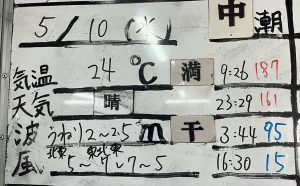 中潮
5/10(水)
気温 24℃ 満 9:26 187
天気 晴 23:29 161
波 うねり2～2.5m 干 3:44 95
風 北東 東北東 5～7～7～5 16:30 15